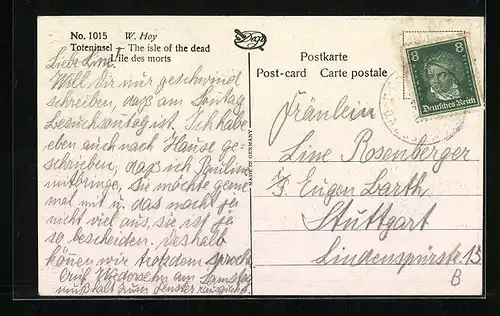 No. 1015 W. Hoy
Toteninsel – The isle of the dead
L'ile des morts
Postkarte
Post-card Carte postale
MADE IN GERMANY
8 8
Deutsches Reich
Liebe Line!
Will Dir nur geschwind
schreiben, daß am Sontag
Besuchsontag ist. Ich habe
eben auch nach Hause ge-
schrieben, daß ich Pauline
mitbringe, Sie möchte gerne
mal mit u. das macht ja
nicht viel aus, sie ist ja
so bescheiden. Deshalb
könen wir trotzdem
am Samstag
mußt halt zum Fenster
Fräulein
Line Rosenberger
Eugen Barth
Stuttgart
Lindenspürstr. 13
B